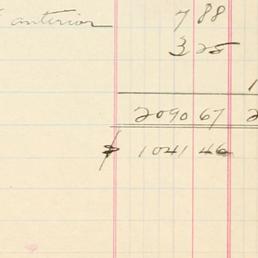 anterior 7 88
3 25
2090 67 2
$ 1041 46